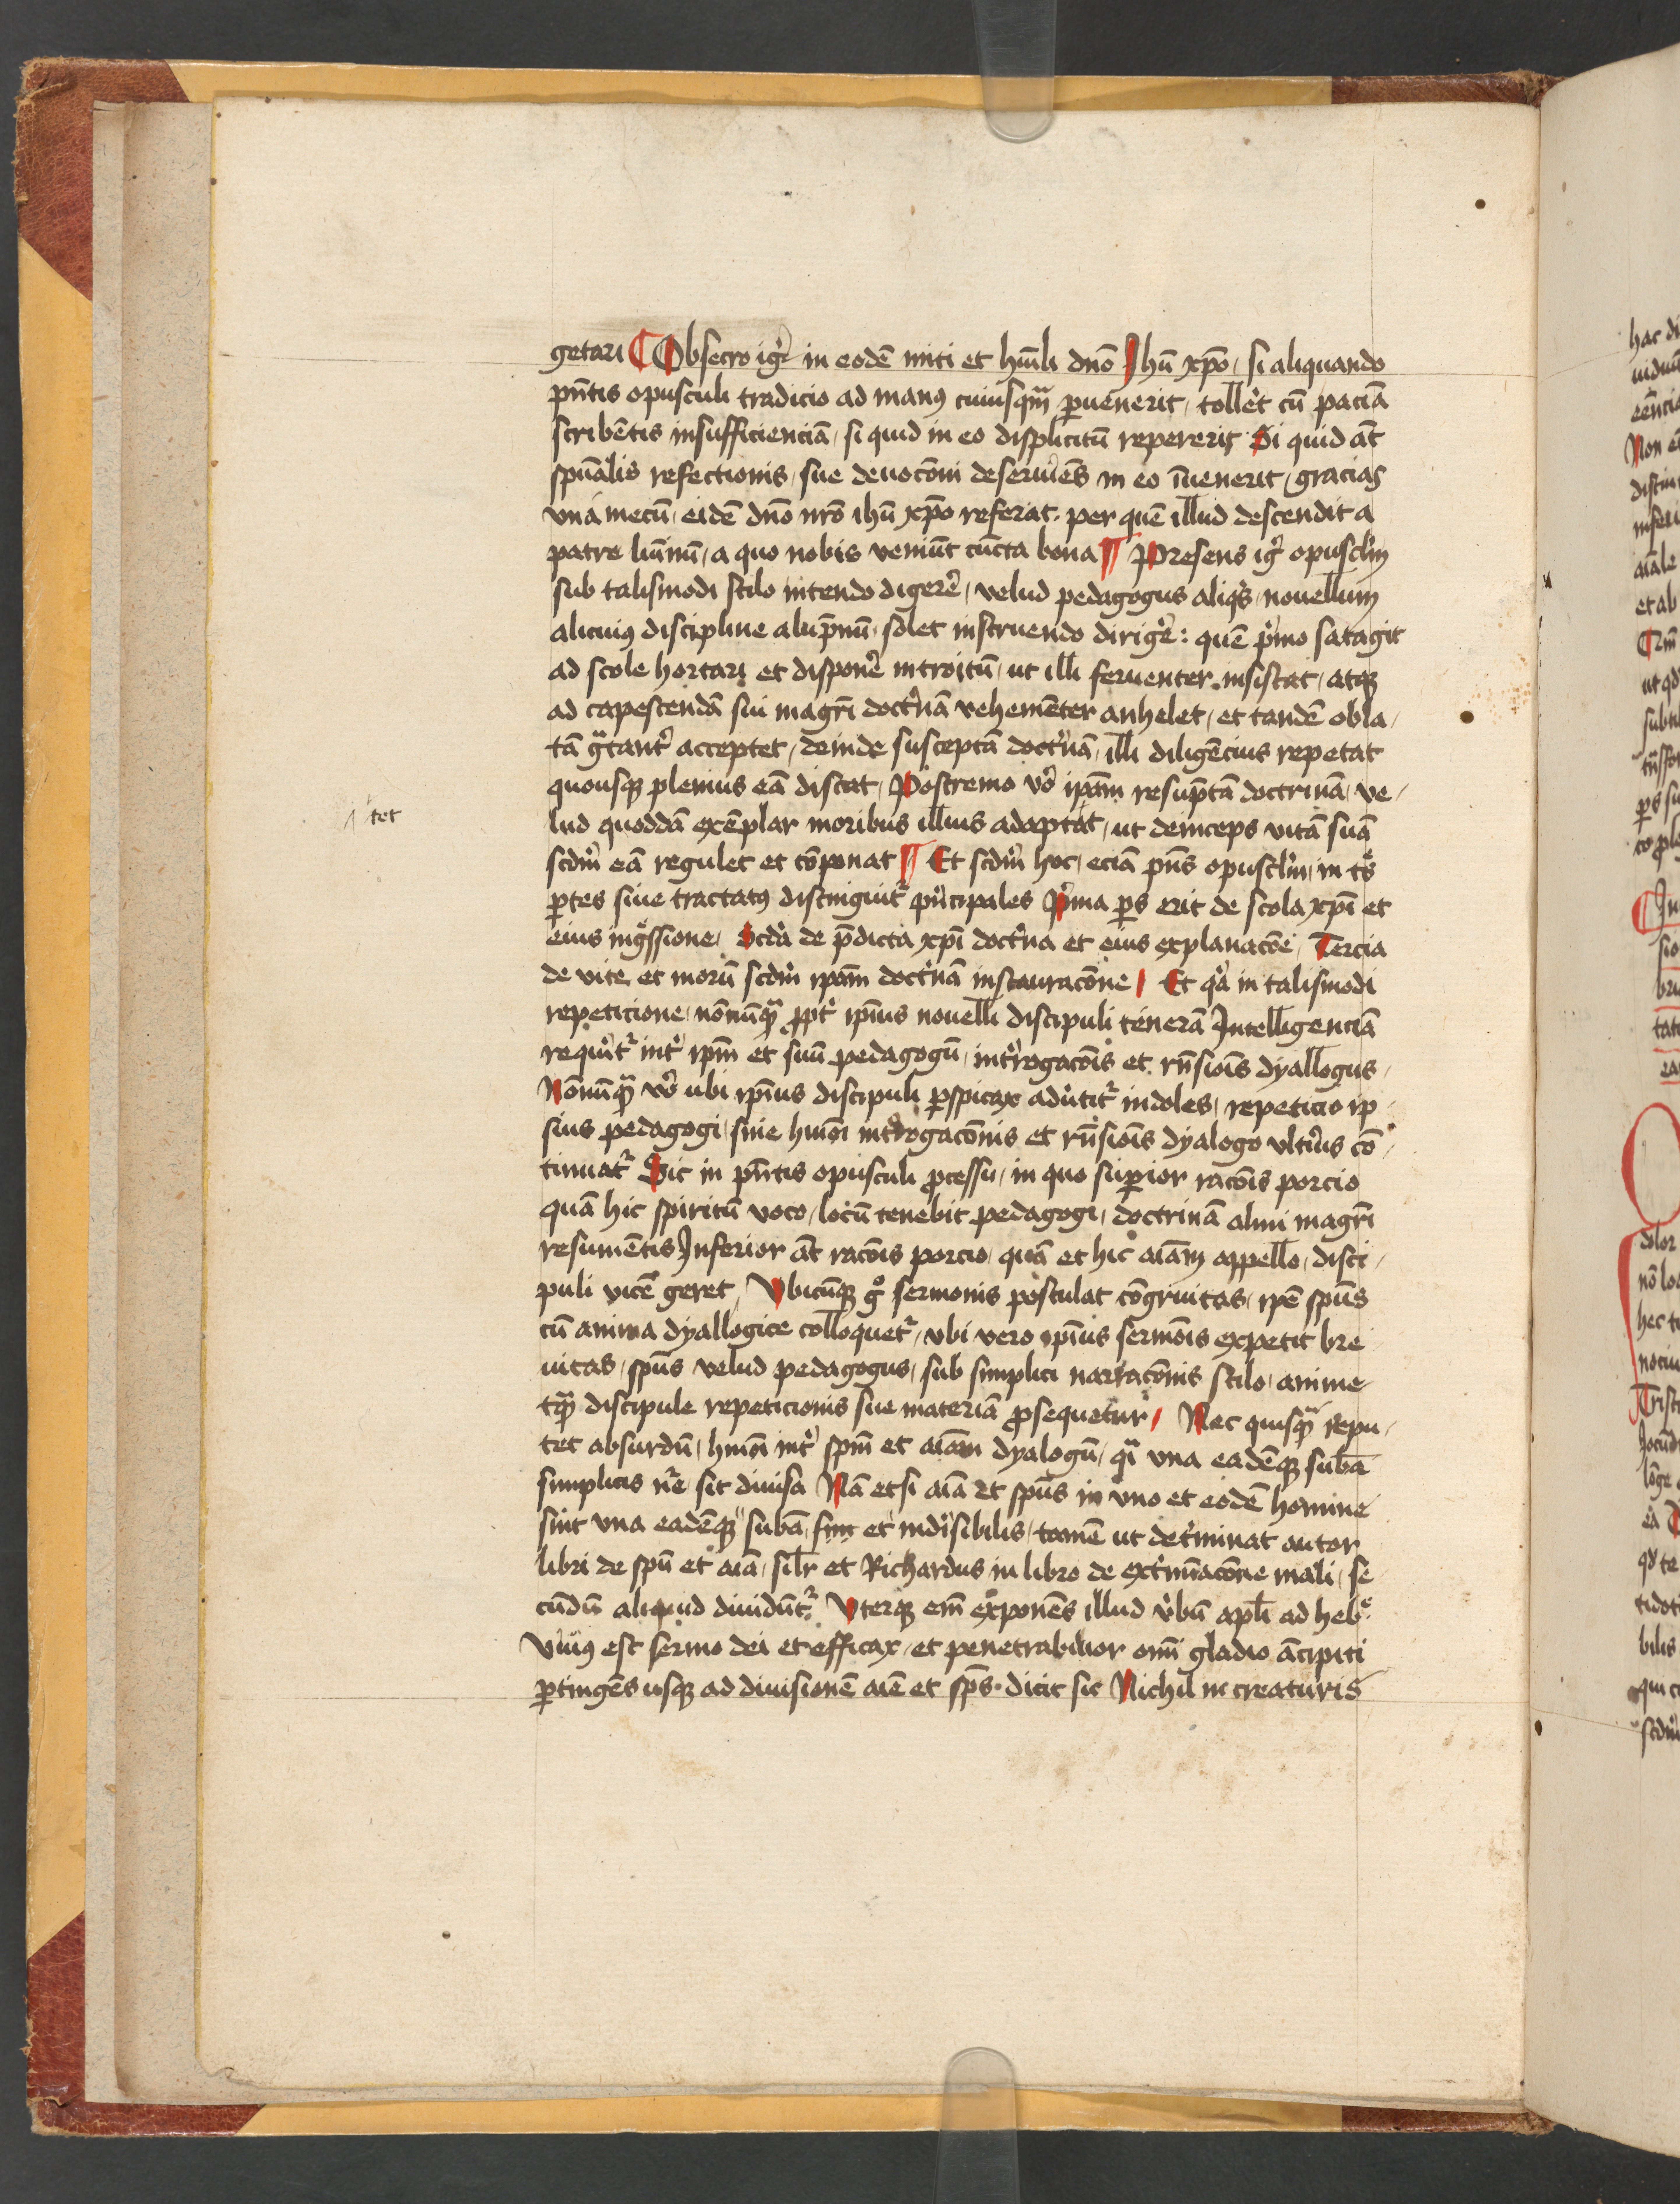 getari Obsecro igr̃ in eodē miti et hūili dn̄o Ihū xp̄o, si aliquando
pn̄tis opusculi tradicio ad manꝯ cuiusqm̄ ꝑuenerit, tollet cū paciā
scribētis insufficienciā, si quid in eo displicitū repererit Si quid āt
spūalis refectionis, sue deuocōni deseruiēs in eo īuenerit, gracias
vna mecū, eidē dn̄o nr̄o ihū xp̄o referat, per quē illud descendit a
patre luīnū, a quo nobis veniūt cūcta bona Presens igr̃ opusclm̄
sub talismodi stilo intendo digerē, velud pedagogus aliqs, nouellum
alicuiꝯ discipline alūpnū, solet instruendo dirigē: quē pͥmo satagit
ad scole hortari et disponē introitū, ut illi feruenter insistat, atqꝫ
ad capescendā sui magr̄i doctͥnā vehemēter anhelet, et tandē obla,
tā gͣtantͥ acceptet, deinde susceptā doctͥnā, illi diligēcius repetat
quousqꝫ plenius eā discat, Postremo vͦ ip̄am resūptā doctrinā, ve,
tet
lud quoddā exēplar moribus illius adaptat, ut deinceps vitā suā
scdm̄ eā regulet et cōponat Et scdm̄ hoc, eciā pn̄s opusclm̄, in tͤs
ꝑtes siue tractatꝯ distinguitͬ pͥncipales Pͥma ꝑs erit de scola xp̄i et
eius ingͤssione, Scda de p̄dicta xp̄i doctͥna et eius explanacōe, Tercia
de vite et morū scdm̄ ip̄am doctͥnā instauracōne, Et qͥa in talismodi
repeticione, nōnūqͣ ꝓptͬ ip̄ius nouelli discipuli tenerā Intelligenciā
requiritͬ intͬ ip̄m et suū pedagogū, intͬrogacōis et rn̄siōis dyallogus,
Nōnūqͣ vͦ ubi ip̄ius discipuli ꝑspicax adūtitͬ indoles, repeticio ip
sius pedagogi, sine hmōi intͬrogacōnis et rn̄siōis dyalogo vltͥus cō,
tinuatͬ Sic in pn̄tis opusculi ꝓcessu, in quo suꝑior racōis porcio
quā hic spiritū voco, locū tenebit pedagogi, doctrinā almi magr̄i
resumētis Inferior āt racōis porcio, quā et hic aīam appello, disci,
puli vicē geret, Vbicūqꝫ gͦ sermonis postulat cōgruitas, ip̄e spūs
cū anima dyallogice colloquetͬ, vbi vero ip̄ius sermōis expetit bre
uitas, spūs velud pedagogus, sub simplici narracōnis stilo, anime
tqͣ discipule repeticionis sue materiā ꝓsequetur, Nec quisqͣ repu,
tet absurdū, hmōi intͬ spm̄ et aīam dyalogū, qͣi vna eadēqꝫ subā
simplicis nr̄e, sit diuisa Nā etsi aīa et spūs in vno et eodē homine
sint vna eadēqꝫ subā, simͬ et indiͥsibilis, tamē ut detͬminat autor
libri de spū et aīa, silr̄ et Richardus in libro de extͬmīacōne mali, se
cūdū aliquid diuidūtͬ Vterqꝫ em̄ exponēs illud vͬbū apl̄i ad hebͤ.
Viuꝯ est sermo dei et efficax, et penetrabilior om̄i gladio ācipiti
ꝑtingēs usqꝫ ad diuisionē aīe et sp̄s. dicit sic Nichil in creaturis